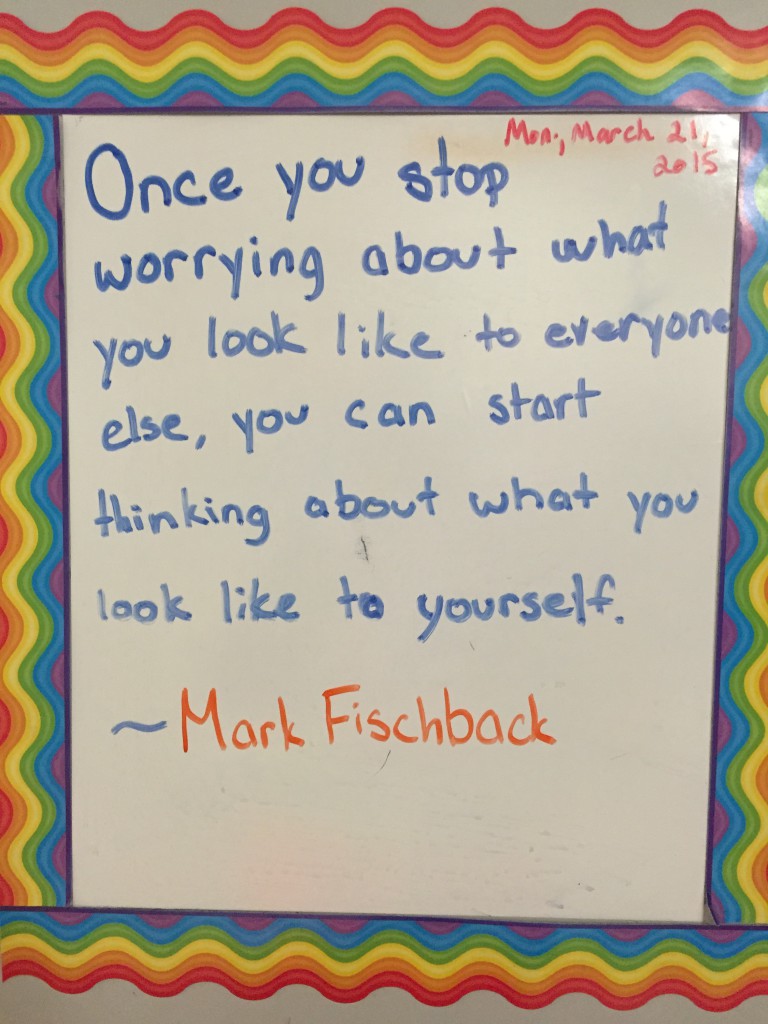 Mon., March 21,
2015
Once you stop
worrying about what
you look like to everyone
else, you can start
thinking about what you
look like to yourself.
~Mark Fischback